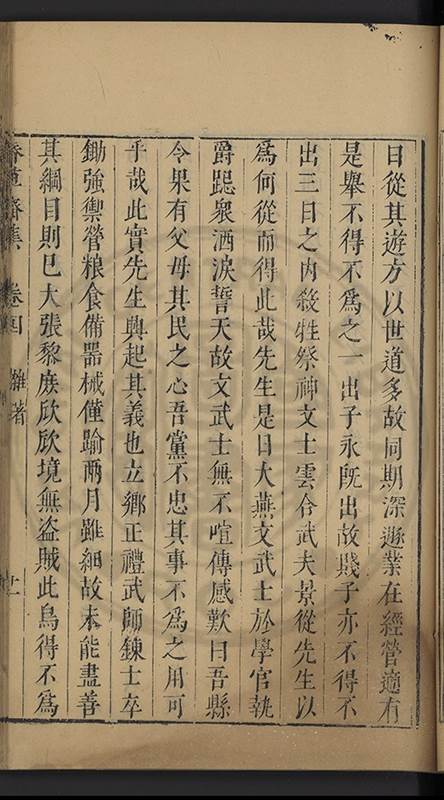 日從其遊方以世道多故同期深遯業在經營適有
是舉不得不為之一出子永既出故賤子亦不得不
出三日之內殺牲祭神文士雲合武夫景從先生以
為何從而得此哉先生是日大燕文武士於學官執
爵跽衆洒淚誓天故文武士無不喧傳感歎曰吾縣
令果有父母其民之心吾黨不忠其事不為之用可
乎哉此實先生興起其義也立鄉正禮武師鍊士卒
鋤強禦營粮食備器械僅踰兩月雖細故未能盡善
其綱目則已大張黎庶欣欣境無盜賊此烏得不為
齋集 卷四 雜著 十一